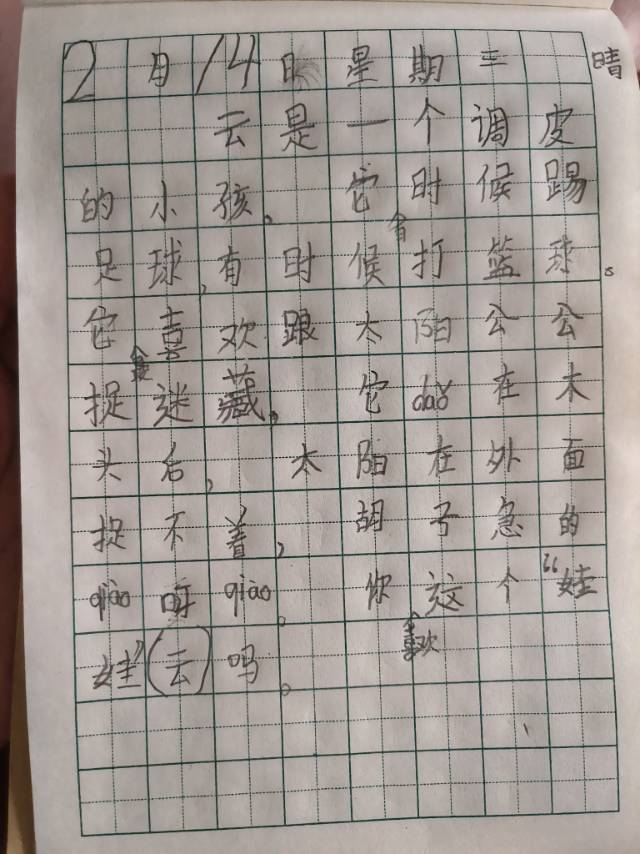 2月14日星期三 晴
云是一个调皮
的小孩。它有时候踢
足球,有时候打篮球。
它喜欢跟太阳公公
捉迷藏。它daǒ在木
头后,太阳在外面
捉不着,胡子急的
qiào呀qiào。你喜欢这个“娃
娃”(云)吗。